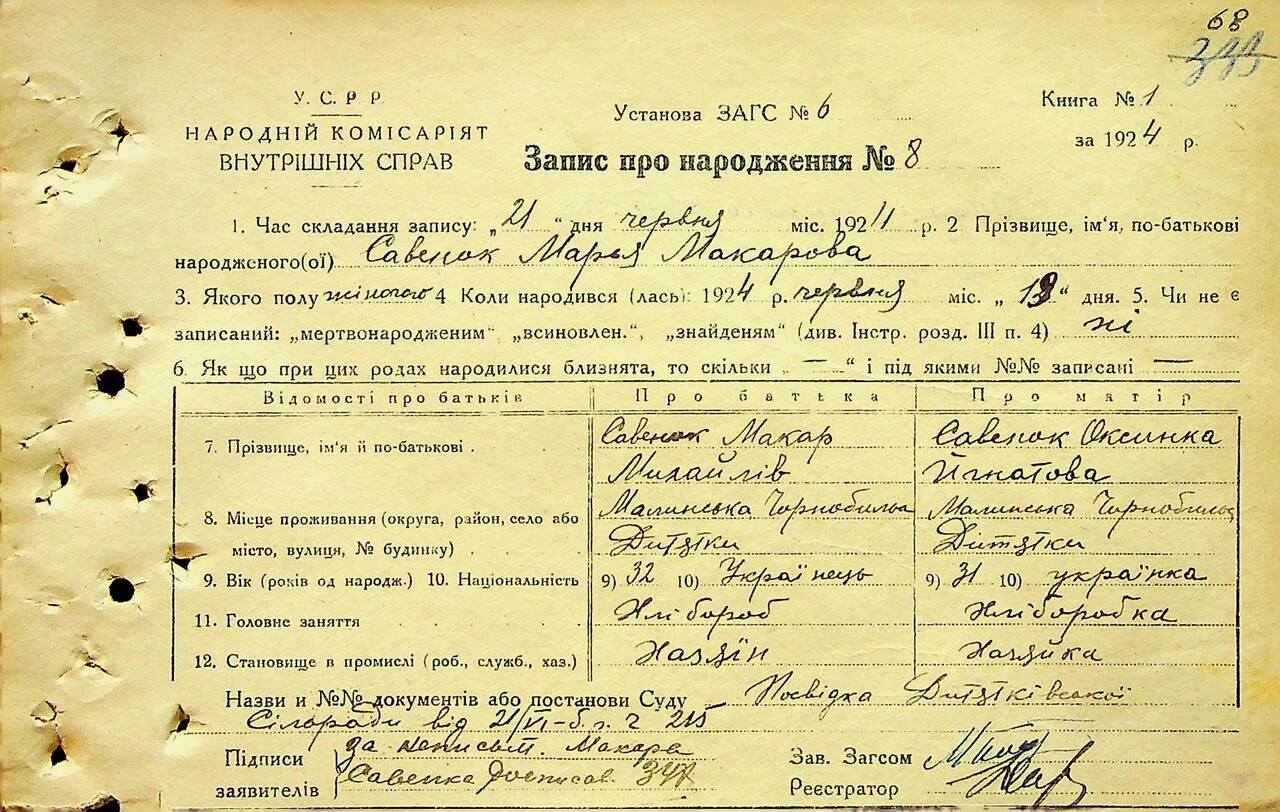 68
333
У. С. Р Р
НАРОДНІЙ КОМІСАРІЯТ
ВНУТРІШНІХ СПРАВ
Установа ЗАГС № 6
Запис про народження № 8
Книга № 1
за 1924 р.
1. Час складання запису: „21“ дня червня міс. 1924 р. 2 Прізвище, ім‘я, по-батькові
народженого(ої) Савенок Марья Макарова
3. Якого полу жіночого 4 Коли народився (лась): 1924 р. червня міс. „ 18 “ дня. 5. Чи не є
записаний: „мертвонародженим“ „всиновлен.“, „знайденям“ (див. Інстр. розд. III п. 4) ні
6. Як що при цих родах народилися близнята, то скільки „ — “ і під якими №№ записані —
Відомості про батьків Про батька Про матір
7. Прізвище, ім‘я й по-батькові . Савенок Макар Савенок Оксинка
Михайлів Йгнатова
8. Місце проживання (округа, район, село або Малинська Чорнобильс Малинська Чорнобильс
місто, вулиця, № будинку) . Дитятки Дитятки
9. Вік (років од народж.) 10. Національність 9) 32 10) Українець 9) 31 10) українка
11. Головне заняття Хлібороб Хліборобка
12. Становище в промислі (роб., служб., хаз.) Хазяїн Хазяйка
Назви и №№ документів або постанови Суду Посвідка Дитятківської
Сілради від 21/VI-б.г. ч 215
Підписи за неписьм. Макара
заявителів Савенка
Зав. Загсом
Реєстратор